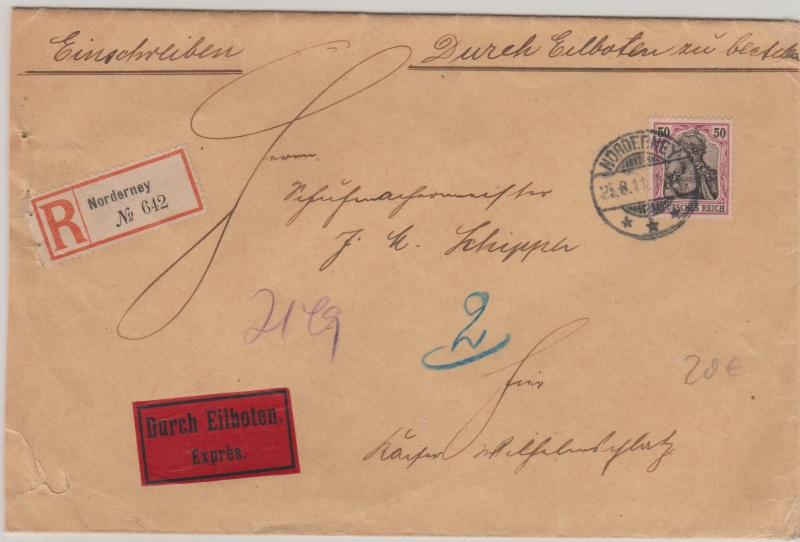 Einschreiben
Durch Eilboten zu bestellen
50 50
DEUTSCHES REICH
NORDERNEY
25.8.11
Herrn
Schuhmachermeister
J. H. Schipper
R
Norderney
№ 642
2
20€
Hier
Kaiser Wilhelmsplatz
Durch Eilboten.
Exprès.